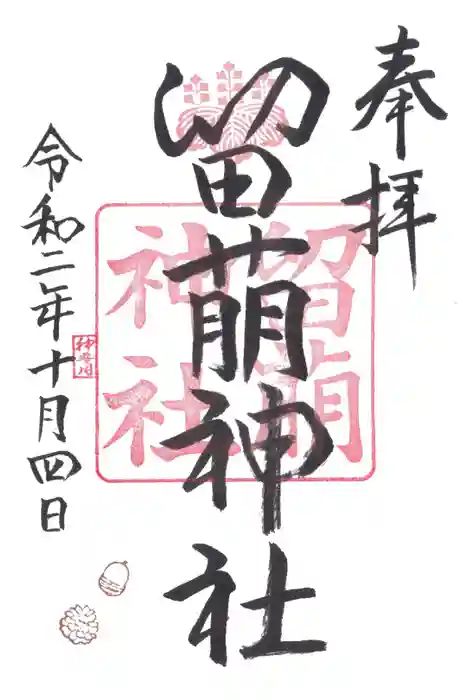 奉拝
留萌神社
留萌
神社
令和二年十月四日